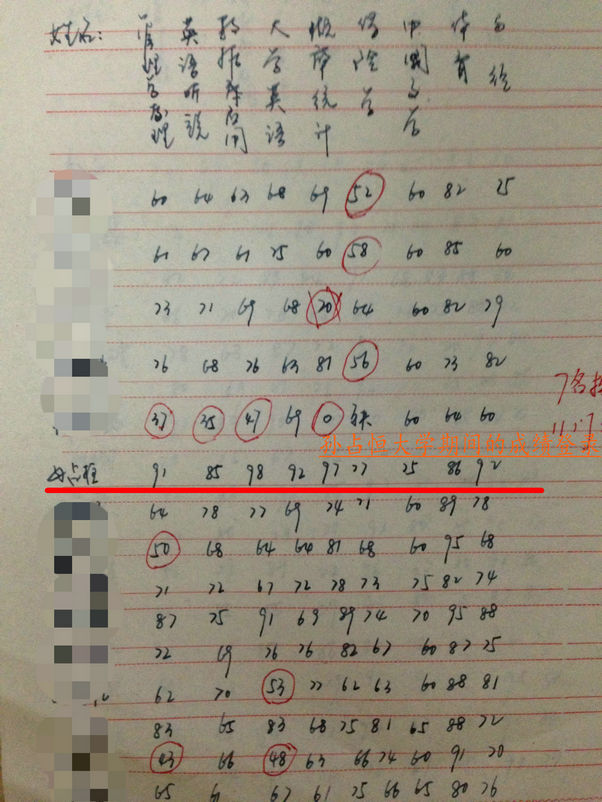 姓名: 管理学原理 英语听说 数据库应用 大学英语 概率统计 保险学 中国文学 体育 总
60 64 63 68 69 52 60 82 75
61 67 61 75 60 58 60 85 60
73 71 69 68 20 64 60 82 79
76 68 76 63 81 56 60 73 82
7名
37 35 47 69 0 缺 60 64 60
孙占恒大学期间的成绩登录
孙占恒 91 85 98 92 97 77 75 86 92
64 78 77 69 74 71 60 89 78
50 68 64 64 81 68 60 95 68
71 72 67 72 78 73 75 82 74
87 75 91 69 89 74 70 95 88
72 69 76 76 82 67 60 87 75
62 70 53 77 62 63 60 88 81
83 65 83 68 75 81 65 88 72
43 66 48 63 66 74 60 91 70
65 61 67 61 75 66 65 80 76